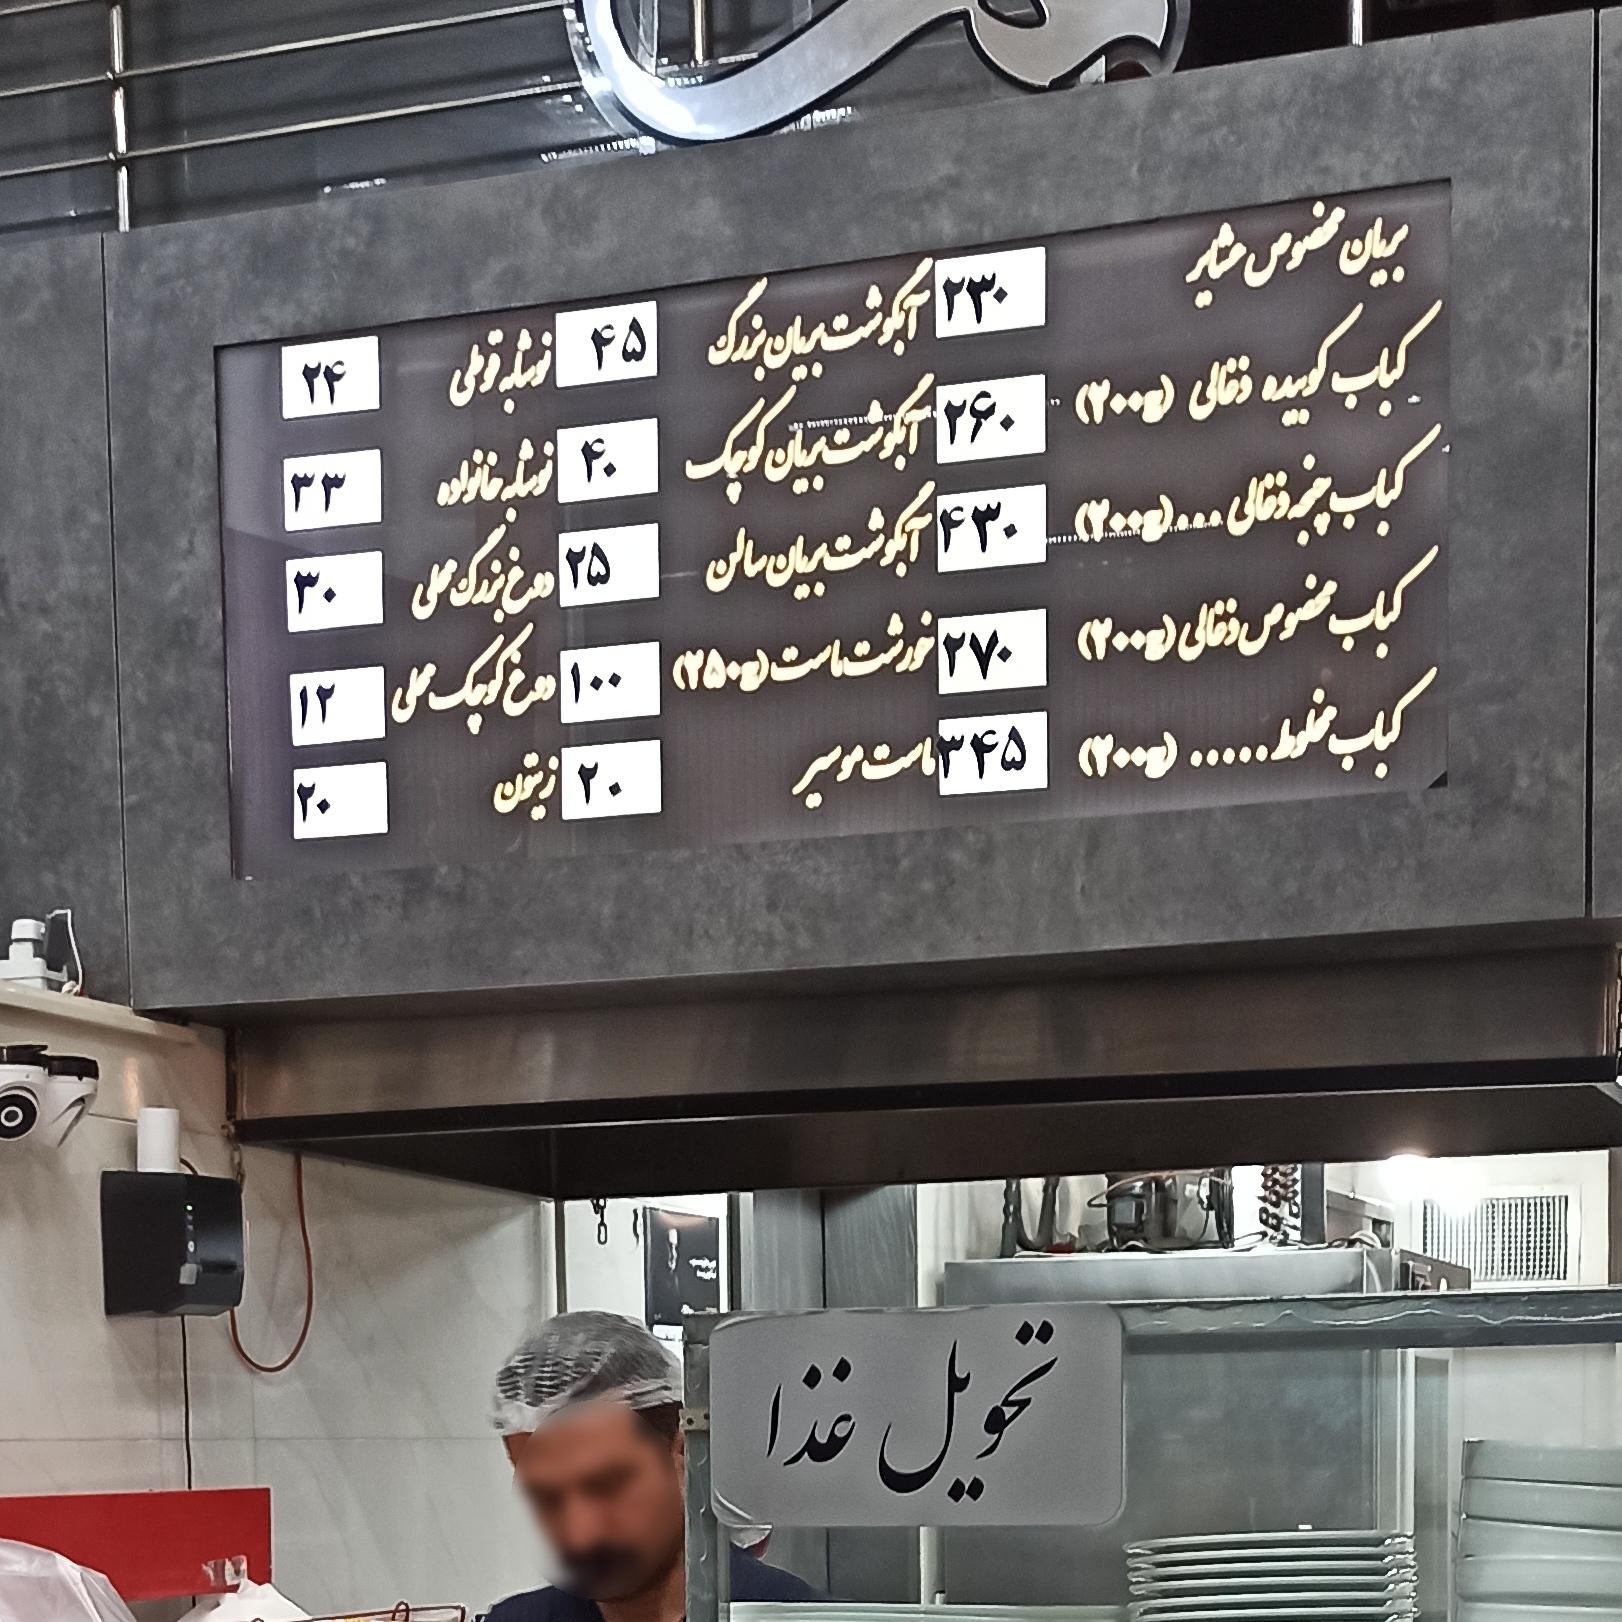 بریان مخصوص عشایر ۲۳۰
کباب کوبیده ذغالی (۲۰۰g) ۲۶۰
کباب چنجه ذغالی ... (۲۰۰g) ۴۳۰
کباب مخصوص ذغالی (۲۰۰g) ۲۷۰
کباب مخلوط ..... (۲۰۰g) ۳۴۵
آبگوشت بریان بزرگ ۴۵
آبگوشت بریان کوچک ۴۰
آبگوشت بریان سالن ۲۵
خورشت ماست (۲۵۰g) ۱۰۰
ماست موسیر ۲۰
نوشابه قوطی ۲۴
نوشابه خانواده ۳۳
دوغ بزرگ محلی ۳۰
دوغ کوچک محلی ۱۲
زیتون ۲۰
تحویل غذا